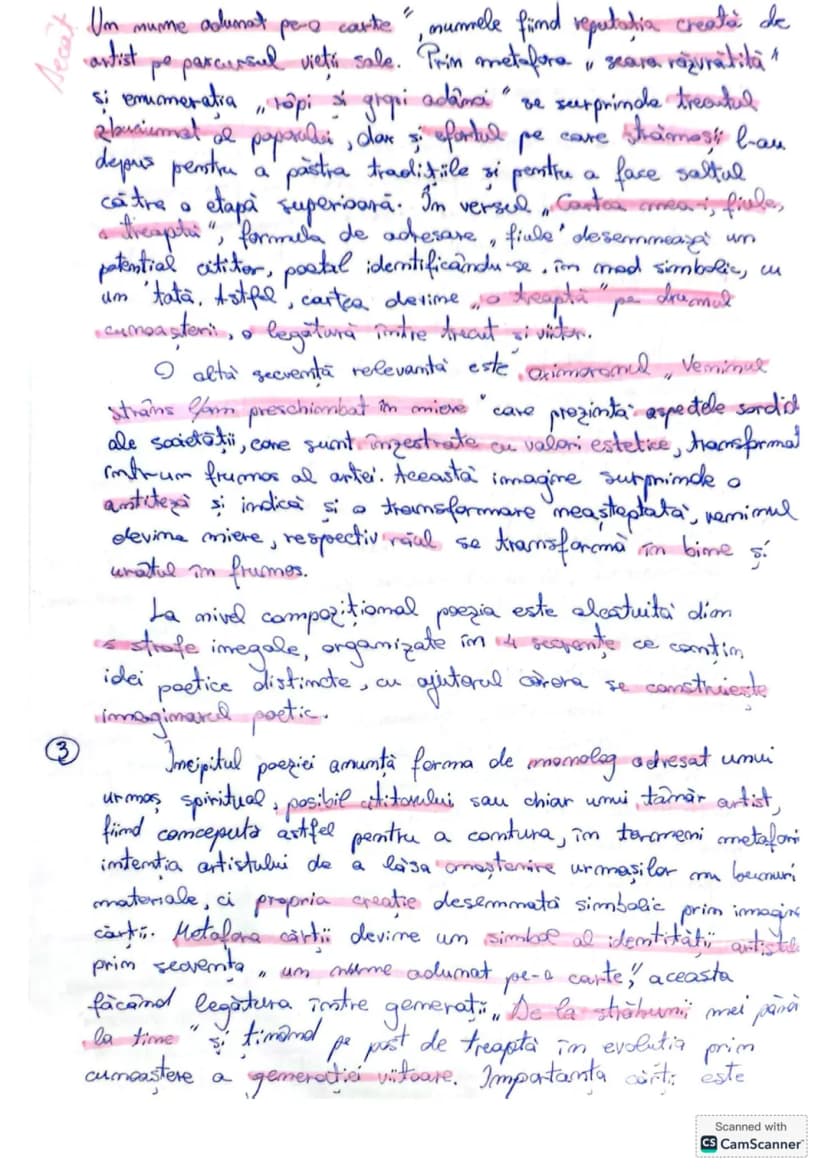 Decât
Un nume adunat pe-o carte", numele fiind reputația creată de
artist pe parcursul vieții sale. Prin metafora „seara răzvrătită"
și enumerația „râpi și gropi adânci" se surprinde trecutul
zbuciumat al poporului, dar și efortul pe care strămoșii l-au
depus pentru a păstra tradițiile și pentru a face saltul
către o etapă superioară. În versul „Cartea mea-i, fiule,
o treaptă", formula de adresare „fiule" desemnează un
potențial cititor, poetul identificându-se, în mod simbolic, cu
un tată. Astfel, cartea devine „o treaptă" pe drumul
cunoașterii, o legătură între trecut și viitor.
O altă secvență relevantă este oximoronul „Veninul
strâns l-am preschimbat în miere" care prezintă aspectele sordid
ale societății, care sunt înzestrate cu valori estetice, transformat
într-un frumos al artei. Această imagine surprinde o
antiteză și indică și o transformare neașteptată, veninul
devine miere, respectiv răul se transformă în bine și
urâtul în frumos.
La nivel compozițional poezia este alcătuită din
strofe inegale, organizate în 4 secvențe ce conțin
idei poetice distincte, cu ajutorul cărora se construiește
imaginarul poetic.
3
Incipitul poeziei anunță forma de monolog adresat unui
urmaș spiritual, posibil cititorului sau chiar unui tânăr artist,
fiind concepută astfel pentru a contura, în termeni metafori
intenția artistului de a lăsa moștenire urmașilor nu bunuri
materiale, ci propria creație desemnată simbolic prin imagin
cărții. Metafora cărții devine un simbol al identității artistic
prin secvența „un nume adunat pe-o carte," aceasta
făcând legătura între generații „De la străbunii mei până
la tine" și ținând pe post de treaptă în evoluția prin
cunoaștere a generației viitoare. Importanța cărții este
Scanned with
CS CamScanner